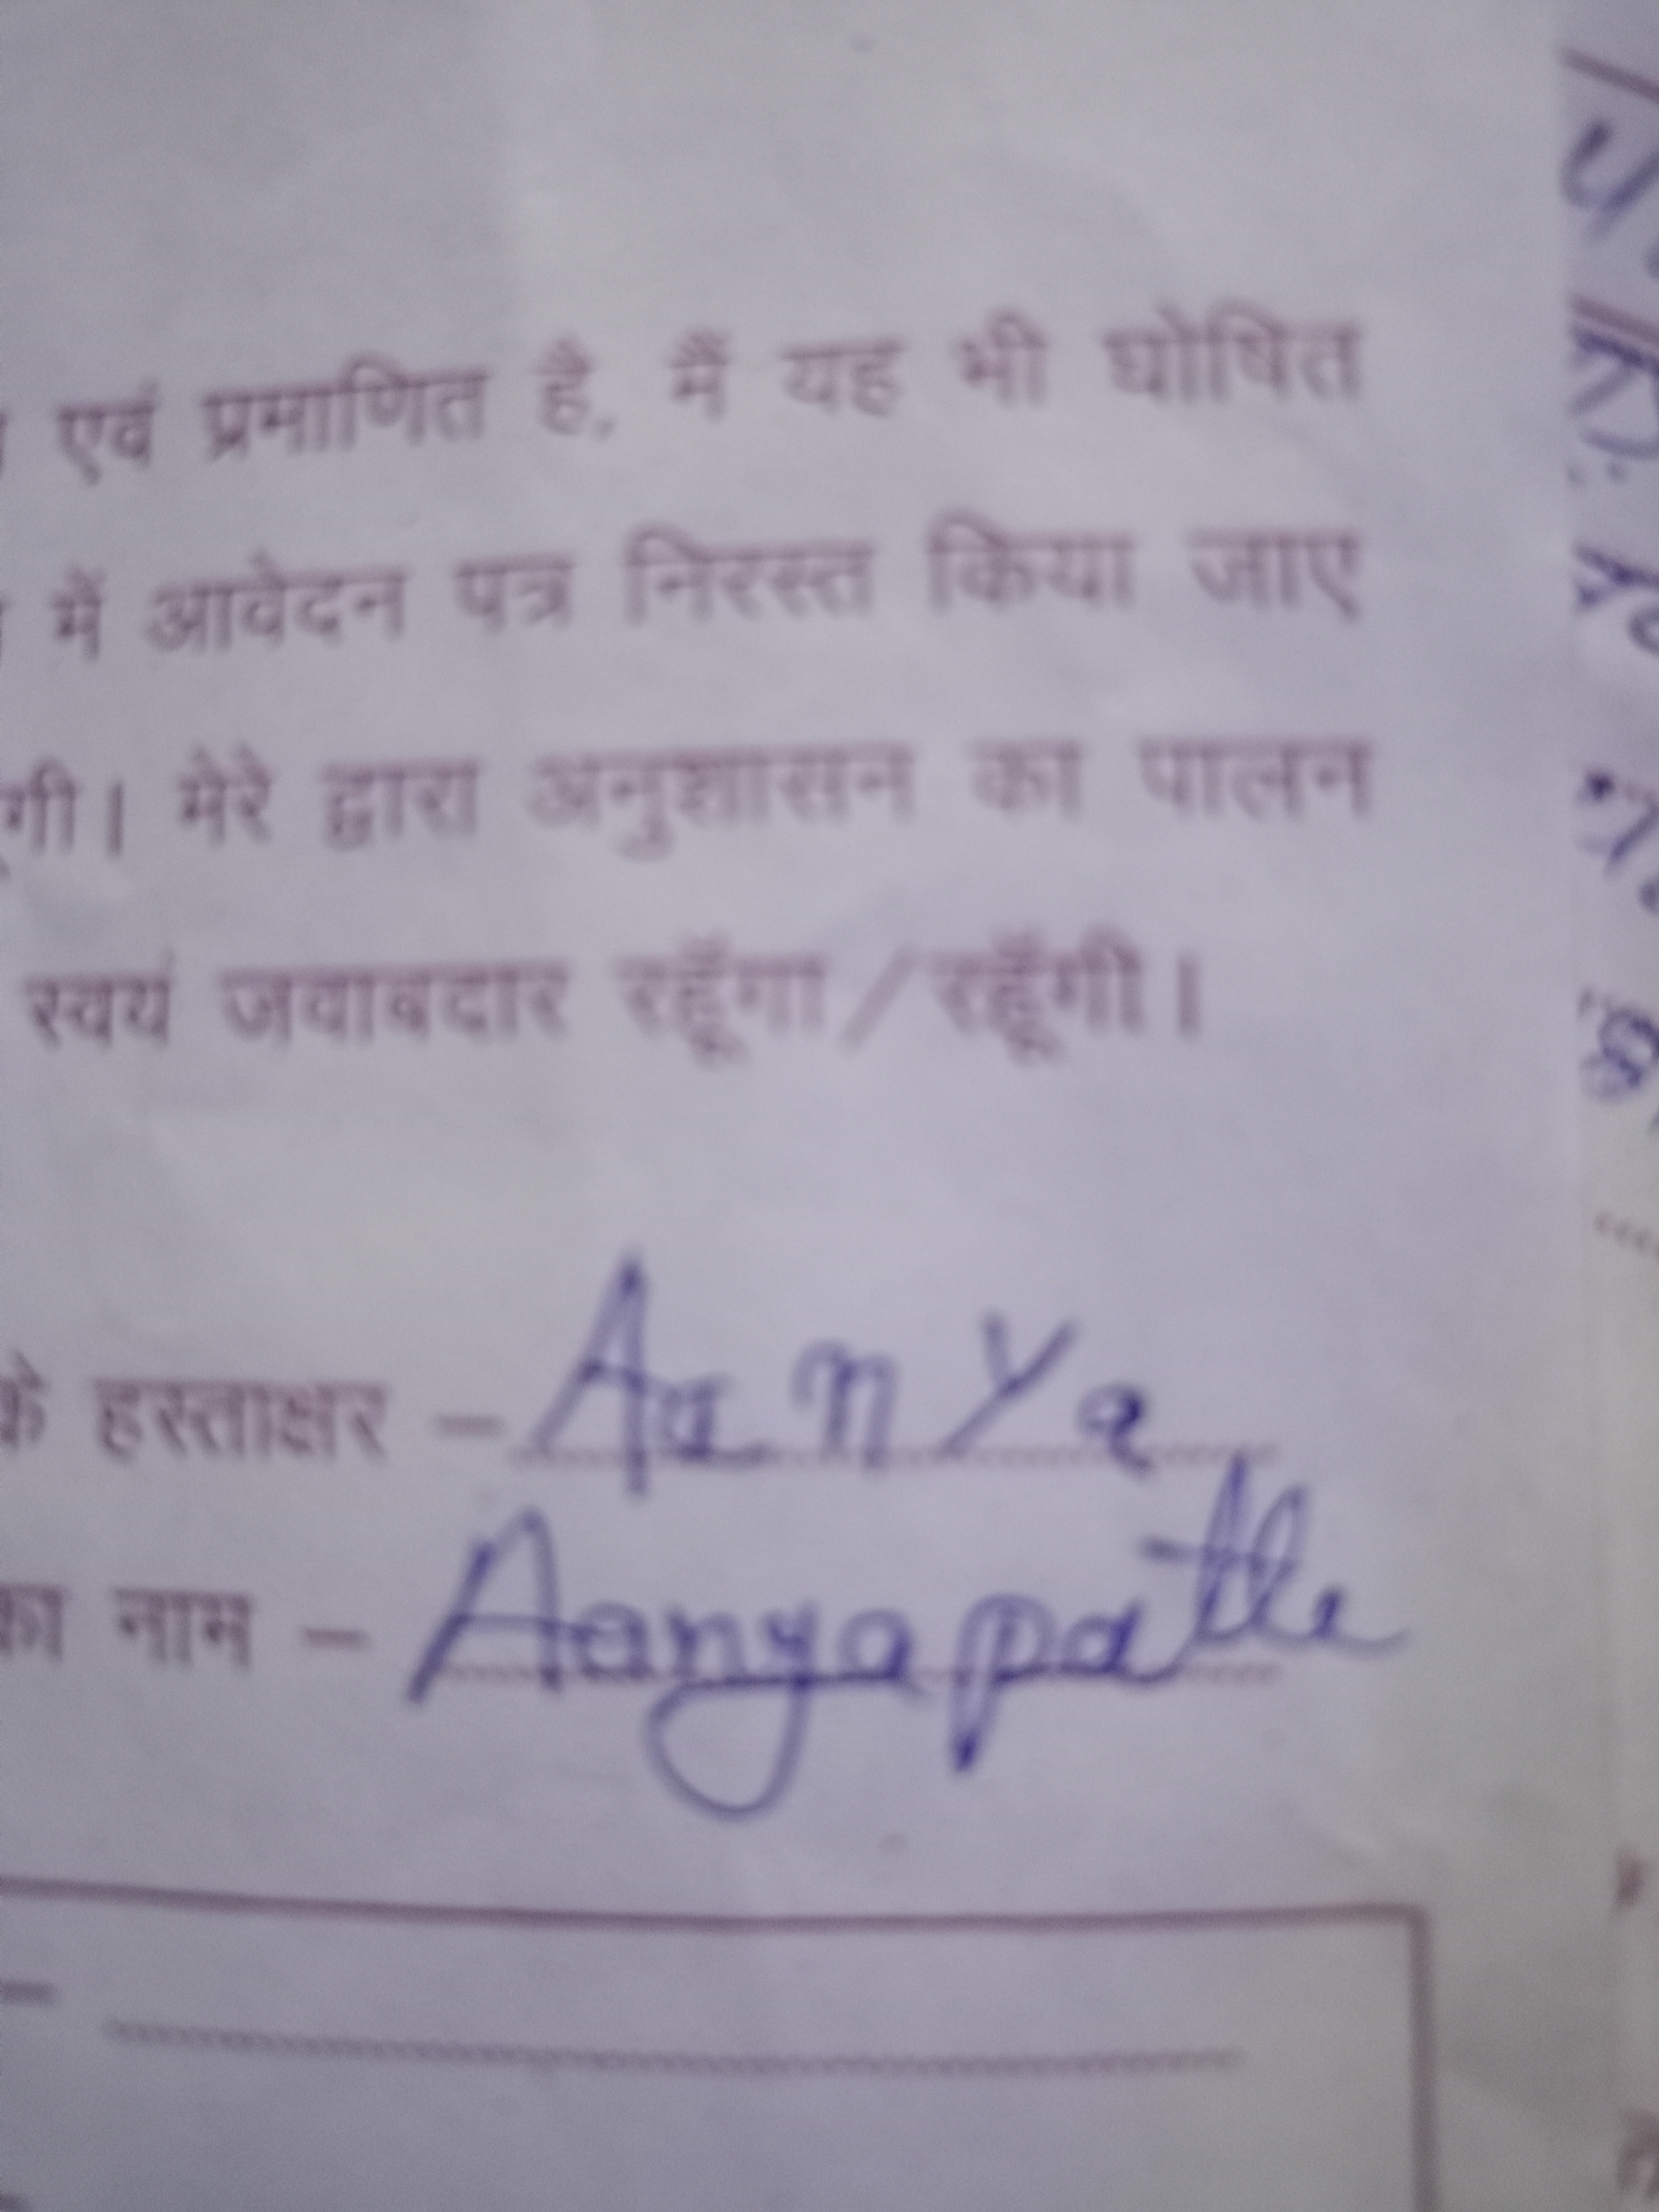 एवं प्रमाणित है, मैं यह भी घोषित
में आवेदन पत्र निरस्त किया जाए
गी। मेरे द्वारा अनुशासन का पालन
स्वयं जवाबदार रहूँगा/रहूँगी।
के हस्ताक्षर – Aanya
का नाम – Aanya patle